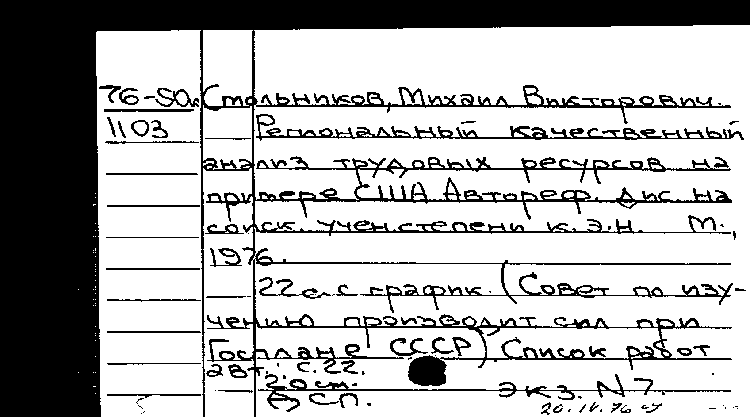 76-SOк Стольников, Михаил Викторович.
1103 Региональный качественный
анализ трудовых ресурсов на
примере США Автореф. дис. на
соиск. учен. степени к. э. н. М.,
1976.
22 с. с график. (Совет по изу-
чению производит. сил при
Госплане СССР). Список работ
авт.: с. 22.
экз. N 7.
20.IV.76